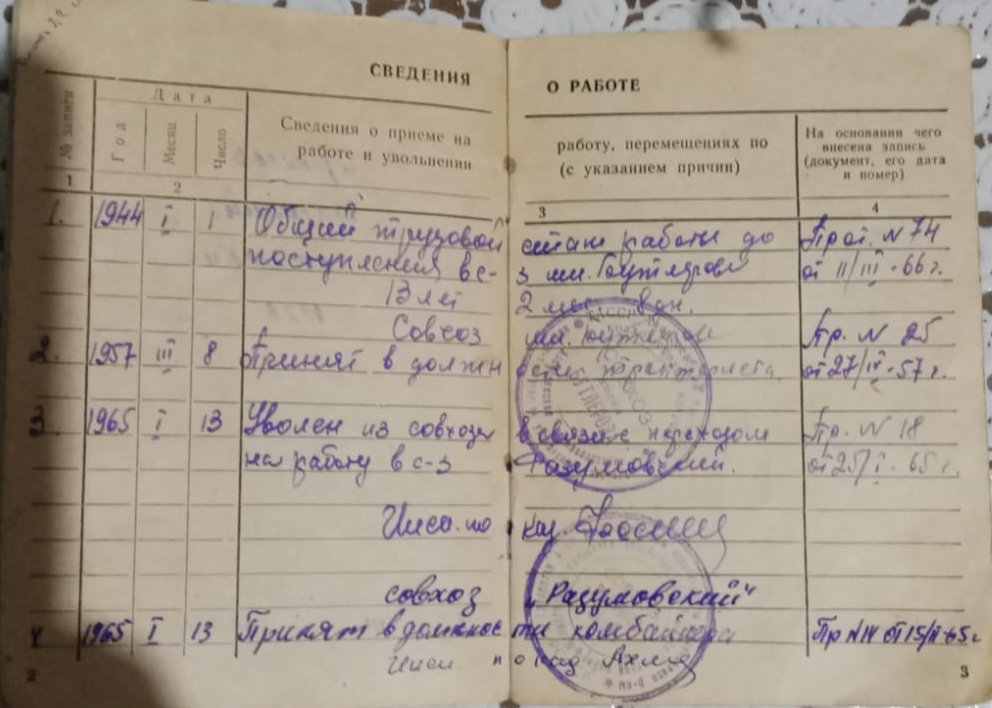 СВЕДЕНИЯ О РАБОТЕ
№ записи
Дата
Год
Месяц
Число
Сведения о приеме на работу, перемещениях по
работе и увольнении (с указанием причин)
На основании чего
внесена запись
(документ, его дата
и номер)
1 2 3 4
1. 1944 I 1 Общий трудовой стаж работы до Прот. N 74
поступления в с-з им. от 11/III-66 г.
13 лет 2 мес.
Совхоз им. Пр. N 25
2. 1957 III 8 Принят в должности тракториста. от 27/III-57 г.
3 1965 I 13 Уволен из совхоза в связи с переходом Пр. N 18
на работу в с-з Разумовский. от 25/I-65 г.
Инсп. по кад.
совхоз „Разумовский"
4 1965 I 13 Принят в должности комбайнера Пр N 14 от 15/II-65 г
Инсп по кад
2 3